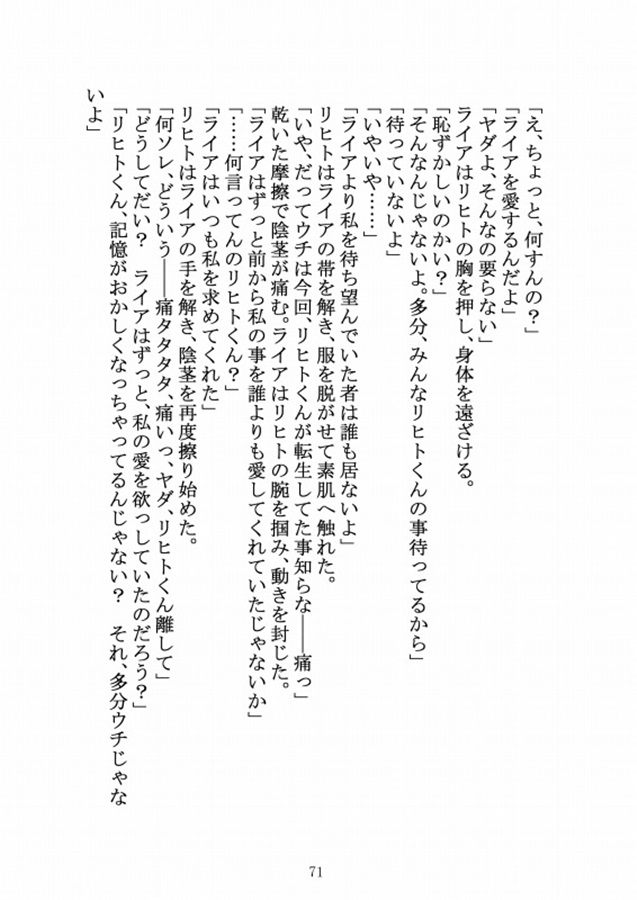 「え、ちょっと、何すんの？」
「ライアを愛するんだよ」
「ヤダよ、そんなの要らない」
ライアはリヒトの胸を押し、身体を遠ざける。
「恥ずかしいのかい？」
「そんなんじゃないよ。多分、みんなリヒトくんの事待ってるから」
「待っていないよ」
「いやいや……」
「ライアより私を待ち望んでいた者は誰も居ないよ」
リヒトはライアの帯を解き、服を脱がせて素肌へ触れた。
「いや、だってウチは今回、リヒトくんが転生してた事知らな――痛っ」
乾いた摩擦で陰茎が痛む。ライアはリヒトの腕を掴み、動きを封じた。
「ライアはずっと前から私の事を誰よりも愛してくれていたじゃないか」
「……何言ってんのリヒトくん？」
「ライアはいつも私を求めてくれた」
リヒトはライアの手を解き、陰茎を再度擦り始めた。
「何ソレ、どういう――痛タタタタ、痛いっ、ヤダ、リヒトくん離して」
「どうしてだい？　ライアはずっと、私の愛を欲っしていたのだろう？」
「リヒトくん、記憶がおかしくなっちゃってるんじゃない？　それ、多分ウチじゃな
いよ」
71